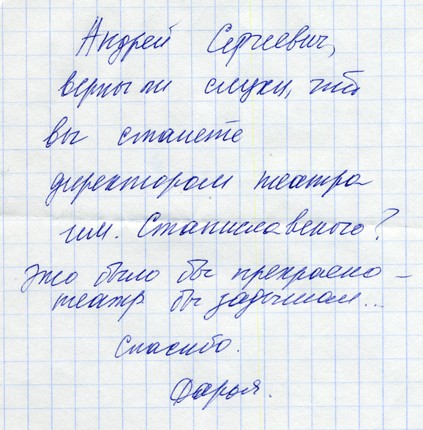 Андрей Сергеевич,
верны ли слухи, что
вы станете
директором театра
им. Станиславского?
Это было бы прекрасно –
театр бы задышал...
Спасибо.
Дарья.